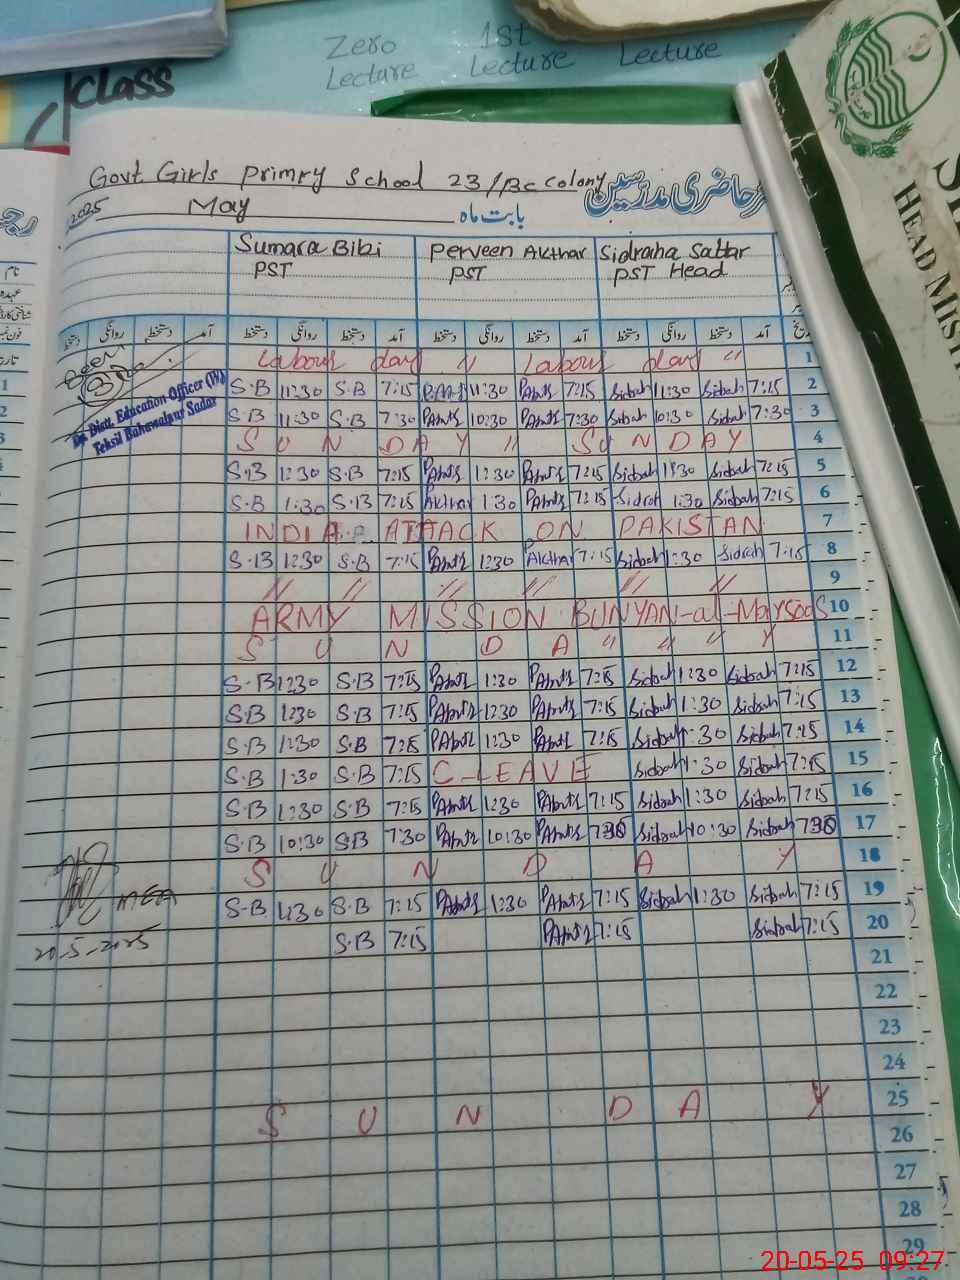 Zero Lecture
1st Lecture
Lecture
Class
HEAD MIST
Govt Girls Primry School 23/BC Colony
حاضری مدرسین
2025 May بابت ماہ
Sumara Bibi PST
Perveen Akthar PST
Sidraha Sattar PST Head
دستخط روانگی دستخط آمد دستخط روانگی دستخط آمد دستخط روانگی دستخط آمد دستخط روانگی دستخط آمد
Labour day " Labour day " 1
S.B 11:30 S.B 7:15 11:30 7:15 Sidrah 11:30 Sidrah 7:15 2
S.B 11:30 S.B 7:30 10:30 7:30 Sidrah 10:30 Sidrah 7:30 3
Dy. Distt. Education Officer (W)
Tehsil Bahawalpur Sadar
SUNDAY " SUNDAY 4
S.B 1:30 S.B 7:15 1:30 7:15 Sidrah 1:30 Sidrah 7:15 5
S.B 1:30 S.B 7:15 Akthar 1:30 7:15 Sidrah 1:30 Sidrah 7:15 6
INDIA ATAACK ON PAKISTAN 7
S.B 1:30 S.B 7:15 1:30 Akthar 7:15 Sidrah 1:30 Sidrah 7:15 8
" " " " " " 9
ARMY MISSION BUNYAN-al-Marsoos 10
SUNDA " " " Y 11
S.B 1:30 S.B 7:15 1:30 7:15 Sidrah 1:30 Sidrah 7:15 12
S.B 1:30 S.B 7:15 1:30 7:15 Sidrah 1:30 Sidrah 7:15 13
S.B 1:30 S.B 7:15 1:30 7:15 Sidrah 1:30 Sidrah 7:15 14
S.B 1:30 S.B 7:15 C-LEAVE Sidrah 1:30 Sidrah 7:15 15
S.B 1:30 S.B 7:15 1:30 7:15 Sidrah 1:30 Sidrah 7:15 16
S.B 10:30 S.B 7:30 10:30 7:30 Sidrah 10:30 Sidrah 7:30 17
SUNDAY 18
MEA
S.B 1:30 S.B 7:15 1:30 7:15 Sidrah 1:30 Sidrah 7:15 19
20-5-2025
S.B 7:15 7:15 Sidrah 7:15 20
21
22
23
24
SUNDAY 25
26
27
28
29
20-05-25 09:27